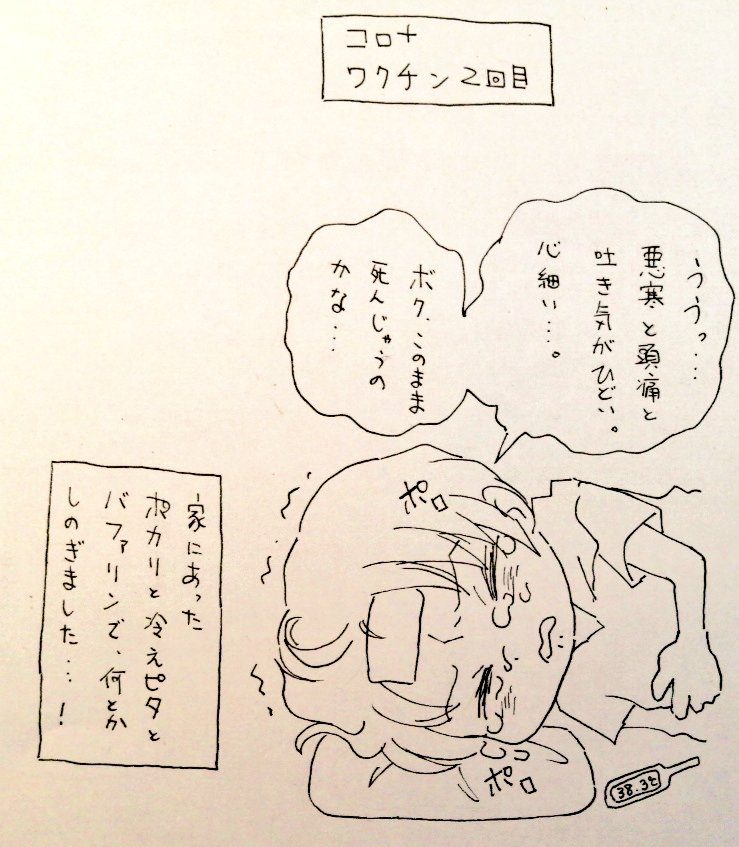 コロナ
ワクチン2回目
ううっ…
悪寒と頭痛と
吐き気がひどい。
心細い…。
ボク、このまま
死んじゃうの
かな…
ポロ
ポロ
38.3℃
家にあった
ポカリと冷えピタと
バファリンで、何とか
しのぎました…！